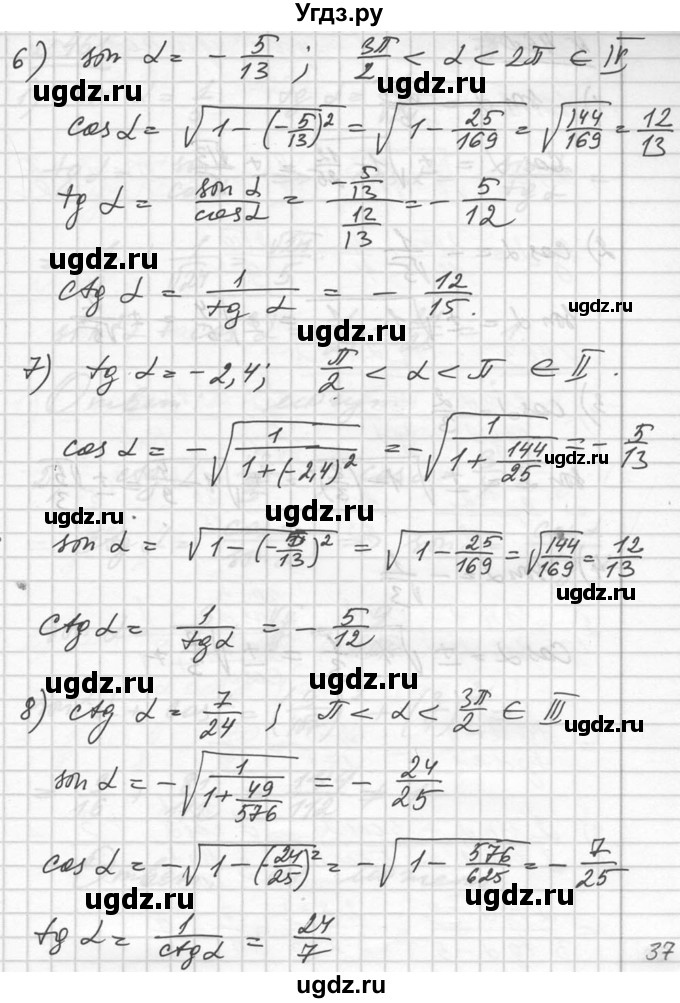 Угдз.ру
6) sin α = - 5/13 ; 3π/2 < α < 2π ∈ IV
ugdz.ru ugdz.ru
cos α = √(1-(-5/13)²) = √(1 - 25/169) = √(144/169) = 12/13
tg α = sin α / cos α = (-5/13)/(12/13) = - 5/12
ugdz.ru ugdz.ru
ctg α = 1/tg α = - 12/15.
ugdz.ru ugdz.ru
7) tg α = -2,4; π/2 < α < π ∈ II.
ugdz.ru ugdz.ru
cos α = -√(1/(1+(-2,4)²)) = -√(1/(1 + 144/25)) = - 5/13
ugdz.ru
ugdz.ru ugdz.ru
sin α = √(1-(-5/13)²) = √(1 - 25/169) = √(144/169) = 12/13
ugdz.ru
ctg α = 1/tg α = - 5/12
ugdz.ru ugdz.ru
8) ctg α = 7/24 ; π < α < 3π/2 ∈ III
ugdz.ru ugdz.ru
sin α = -√(1/(1+49/576)) = - 24/25
ugdz.ru ugdz.ru
cos α = -√(1-(-24/25)²) = -√(1 - 576/625) = - 7/25
ugdz.ru ugdz.ru
tg α = 1/ctg α = 24/7
ugdz.ru
37